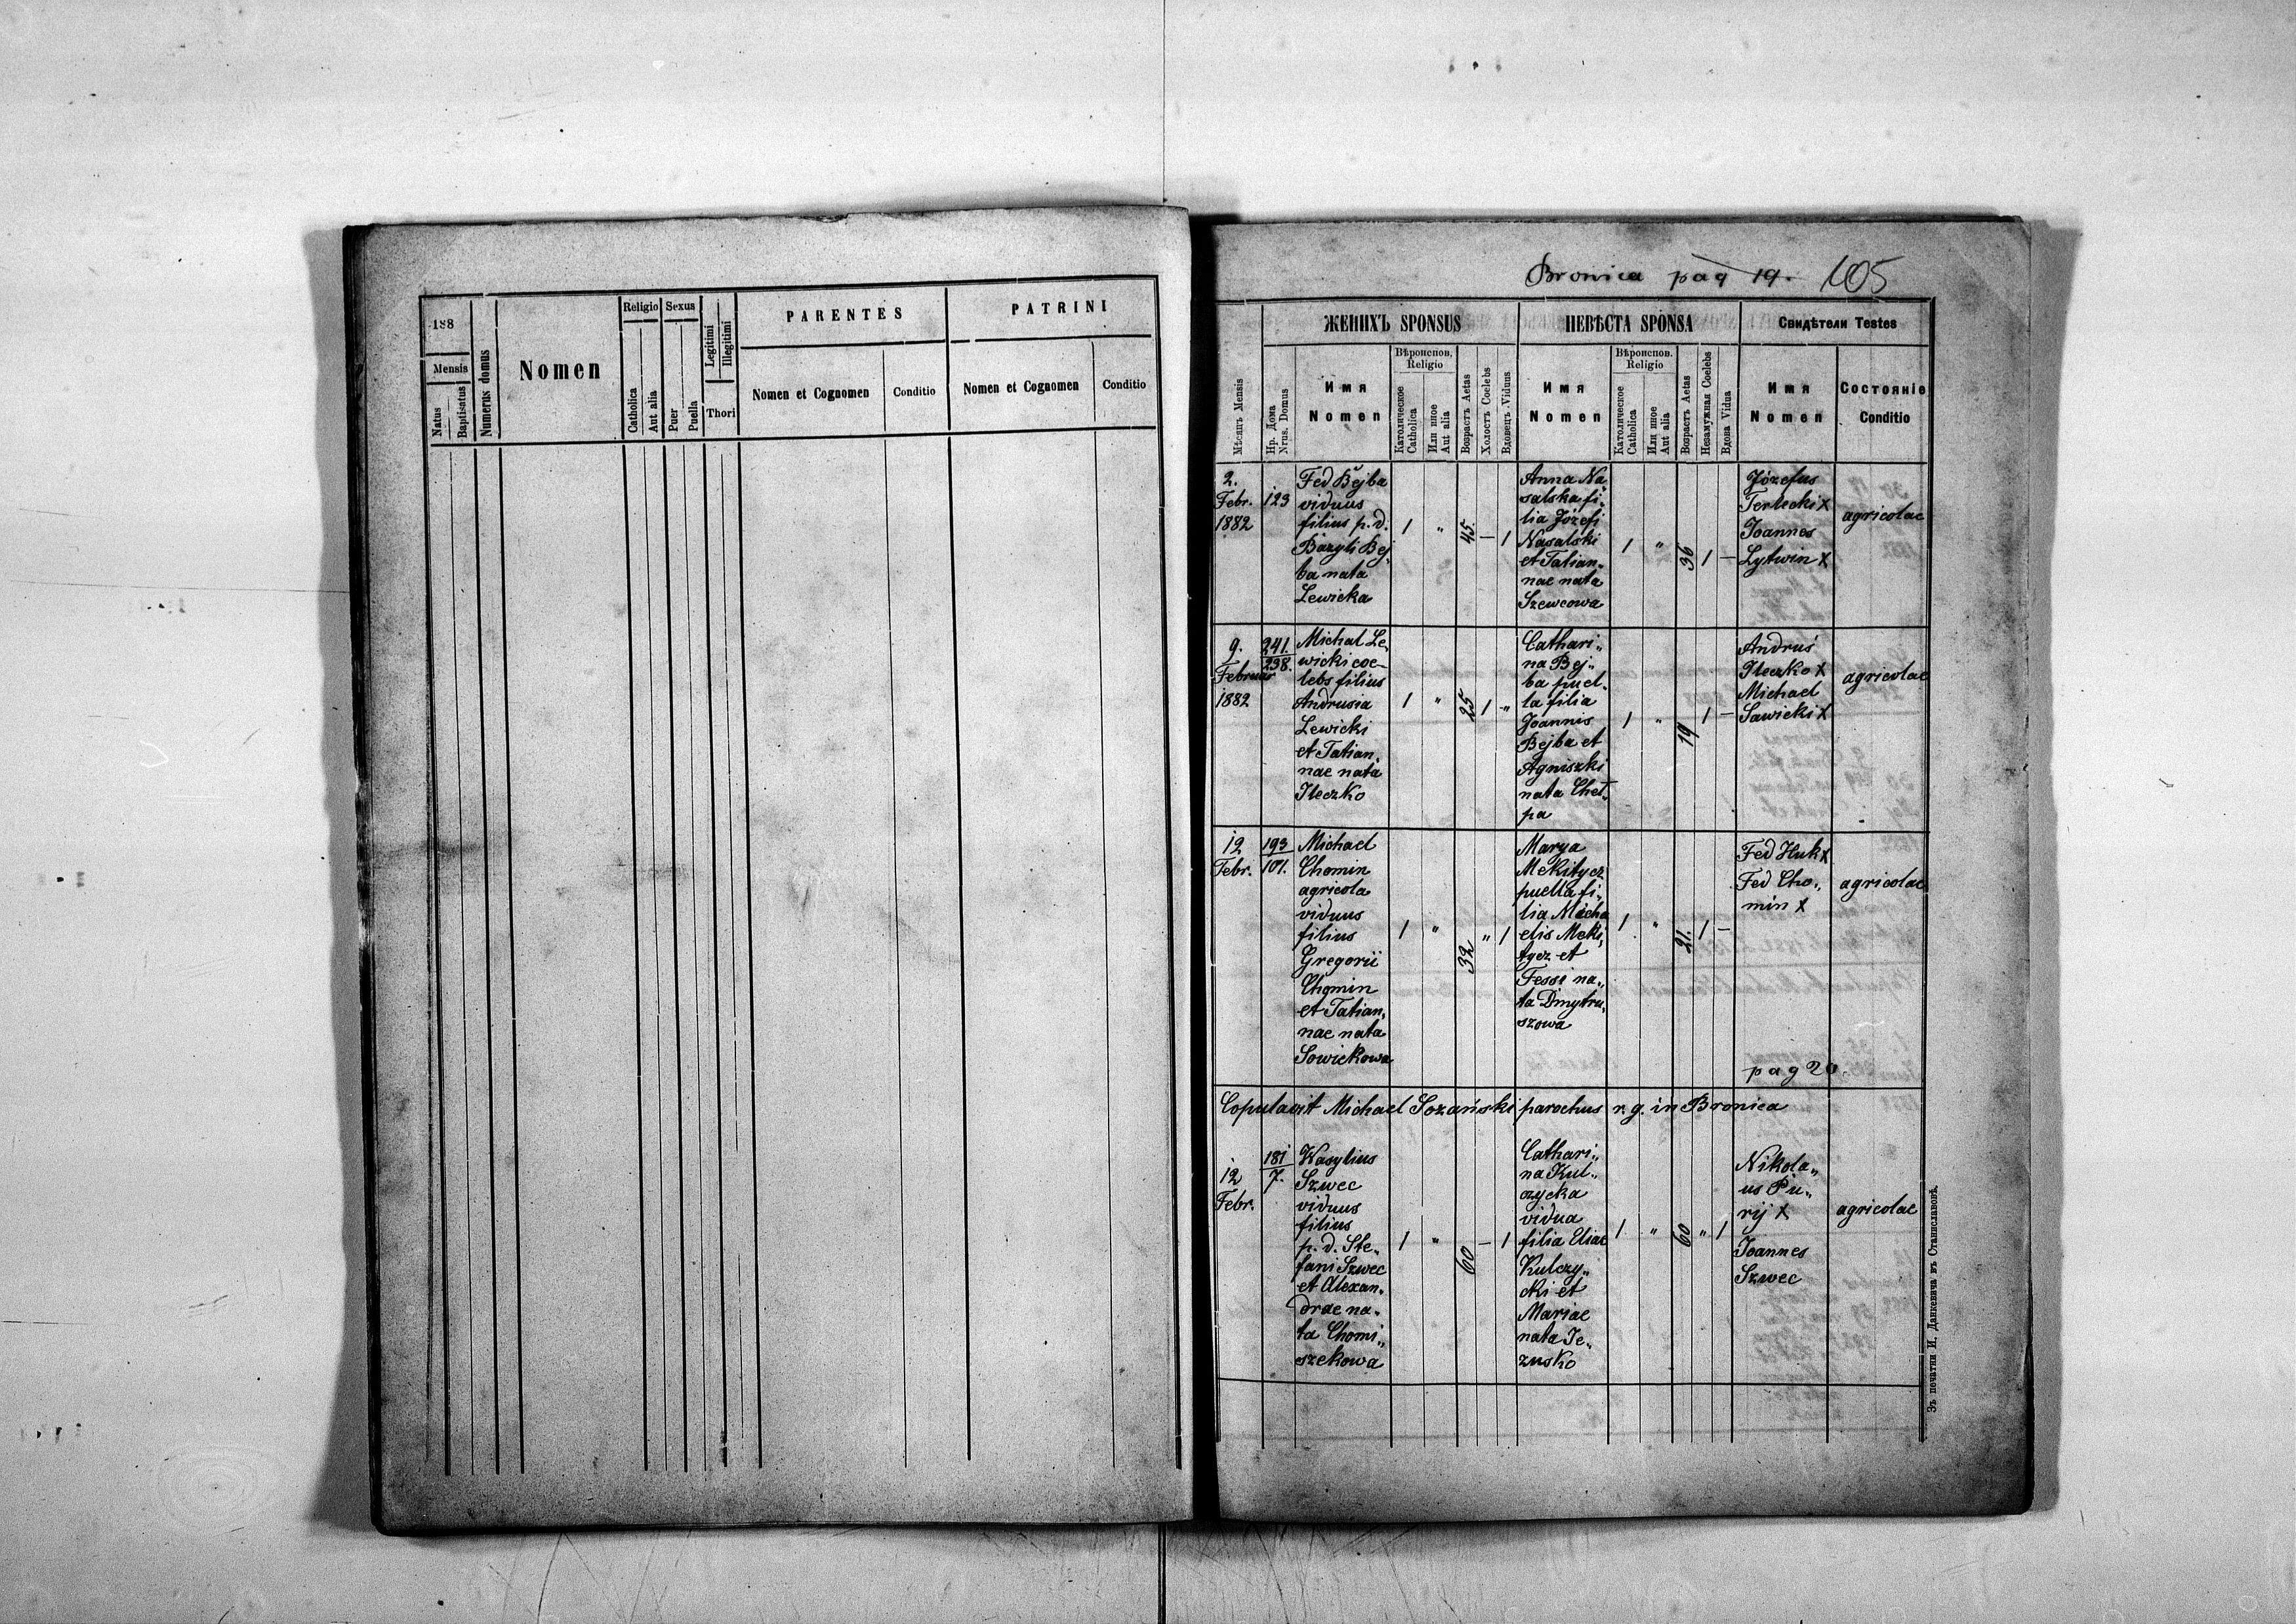 188
Mensis
Natus
Baptisatus
Numerus domus
Nomen
Religio
Catholica
Aut alia
Sexus
Puer
Puella
Legitimi
Illegitimi
Thori
PARENTES
Nomen et Cognomen
Conditio
PATRINI
Nomen et Cognomen
Conditio
Bronica pag 19. 105
Мѣсяцъ Mensis
ЖЕНИХЪ SPONSUS
Нр. Дома
Nrus. Domus
Имя
Nomen
Вѣроиспов.
Religio
Католическое
Catholica
Или иное
Aut alia
Возрастъ Aetas
Холостъ Coelebs
Вдовецъ Viduus
НЕВѢСТА SPONSA
Имя
Nomen
Вѣроиспов.
Religio
Католическое
Catholica
Или иное
Aut alia
Возрастъ Aetas
Незамужная Coelebs
Вдова Vidua
Свидѣтели Testes
Имя
Nomen
Состоянiе
Conditio
2.
Febr.
1882
123
Fed Bejba
viduus
filius p. d.
Bazyli Bej,
ba nata
Lewicka
1 " 45. — 1
Anna Na,
salska fi,
lia Józefi
Nasalski
et Tatian,
nae nata
Szewcowa
1 " 36 1 —
Józefus
Terlecki X
Joannes
Lytwin X
agricolae
9.
Februar
1882
241.
238.
Michal Le,
wicki coe-
lebs filius
Andrusia
Lewicki
et Tatian,
nae nata
Ileczko
1 " 25 1 "
Cathari,,
na Bej,,
ba puel,
la filia
Joannis
Bejba et
Agniszki
nata Cheł,
pa
1 " 19 1 —
Andruś
Ileczko X
Michael
Sawicki X
agricolae
12
Febr.
193
101.
Michael
Chomin
agricola
viduus
filius
Gregorii
Chomin
et Tatian,
nae nata
Sowickowa
1 " 32 " 1
Marya
Mekitycz
puella fi,
lia Micha
elis Meki,
tycz et
Fessi na,,
ta Dmytru,
szowa
1 " 21. 1 —
Fed Huk X
Fed Cho,,
min X
agricolae
pag 20.
Copulavit Michael Sozański parochus r. g. in Bronica
12
Febr.
181
7.
Wasylius
Szwec
viduus
filius
p. d. Ste,,
fani Szwec
et Alexan,
drae na,
ta Chomi,,
szekowa
1 " 60 — 1
Cathari,,
na Kul,,
czycka
vidua
filia Eliae
Kulczy,,
cki et
Mariae
nata Je,
zusko
1 " 60 " 1
Nikola,,
us Pu,,
rij X
Joannes
Szwec
agricolae
Зъ печатни И. Данкевича въ Станиславовѣ.